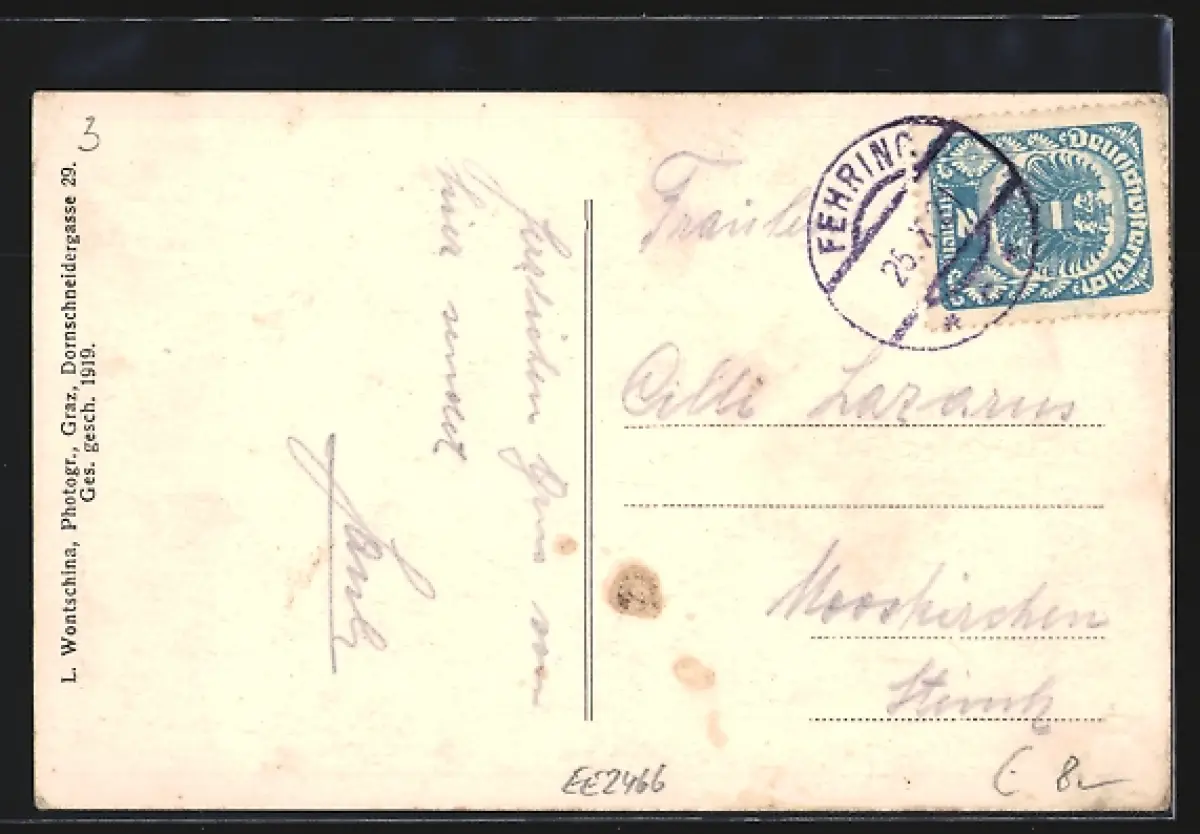 3
L. Wontschina, Photogr., Graz, Dornschneidergasse 29.
Ges. gesch. 1919.
Herzlichen Gruss von
hier sendet
FEHRING
26. X
Deutschösterreich
2
Cilli Lazarus
Mooskirchen
EE2466
€ 8,-